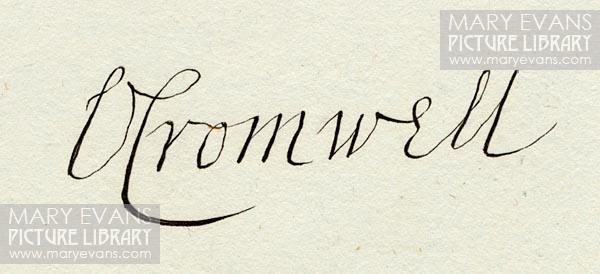 MARY EVANS
PICTURE LIBRARY
www.maryevans.com
OCromwell
MARY EVANS
PICTURE LIBRARY
www.maryevans.com